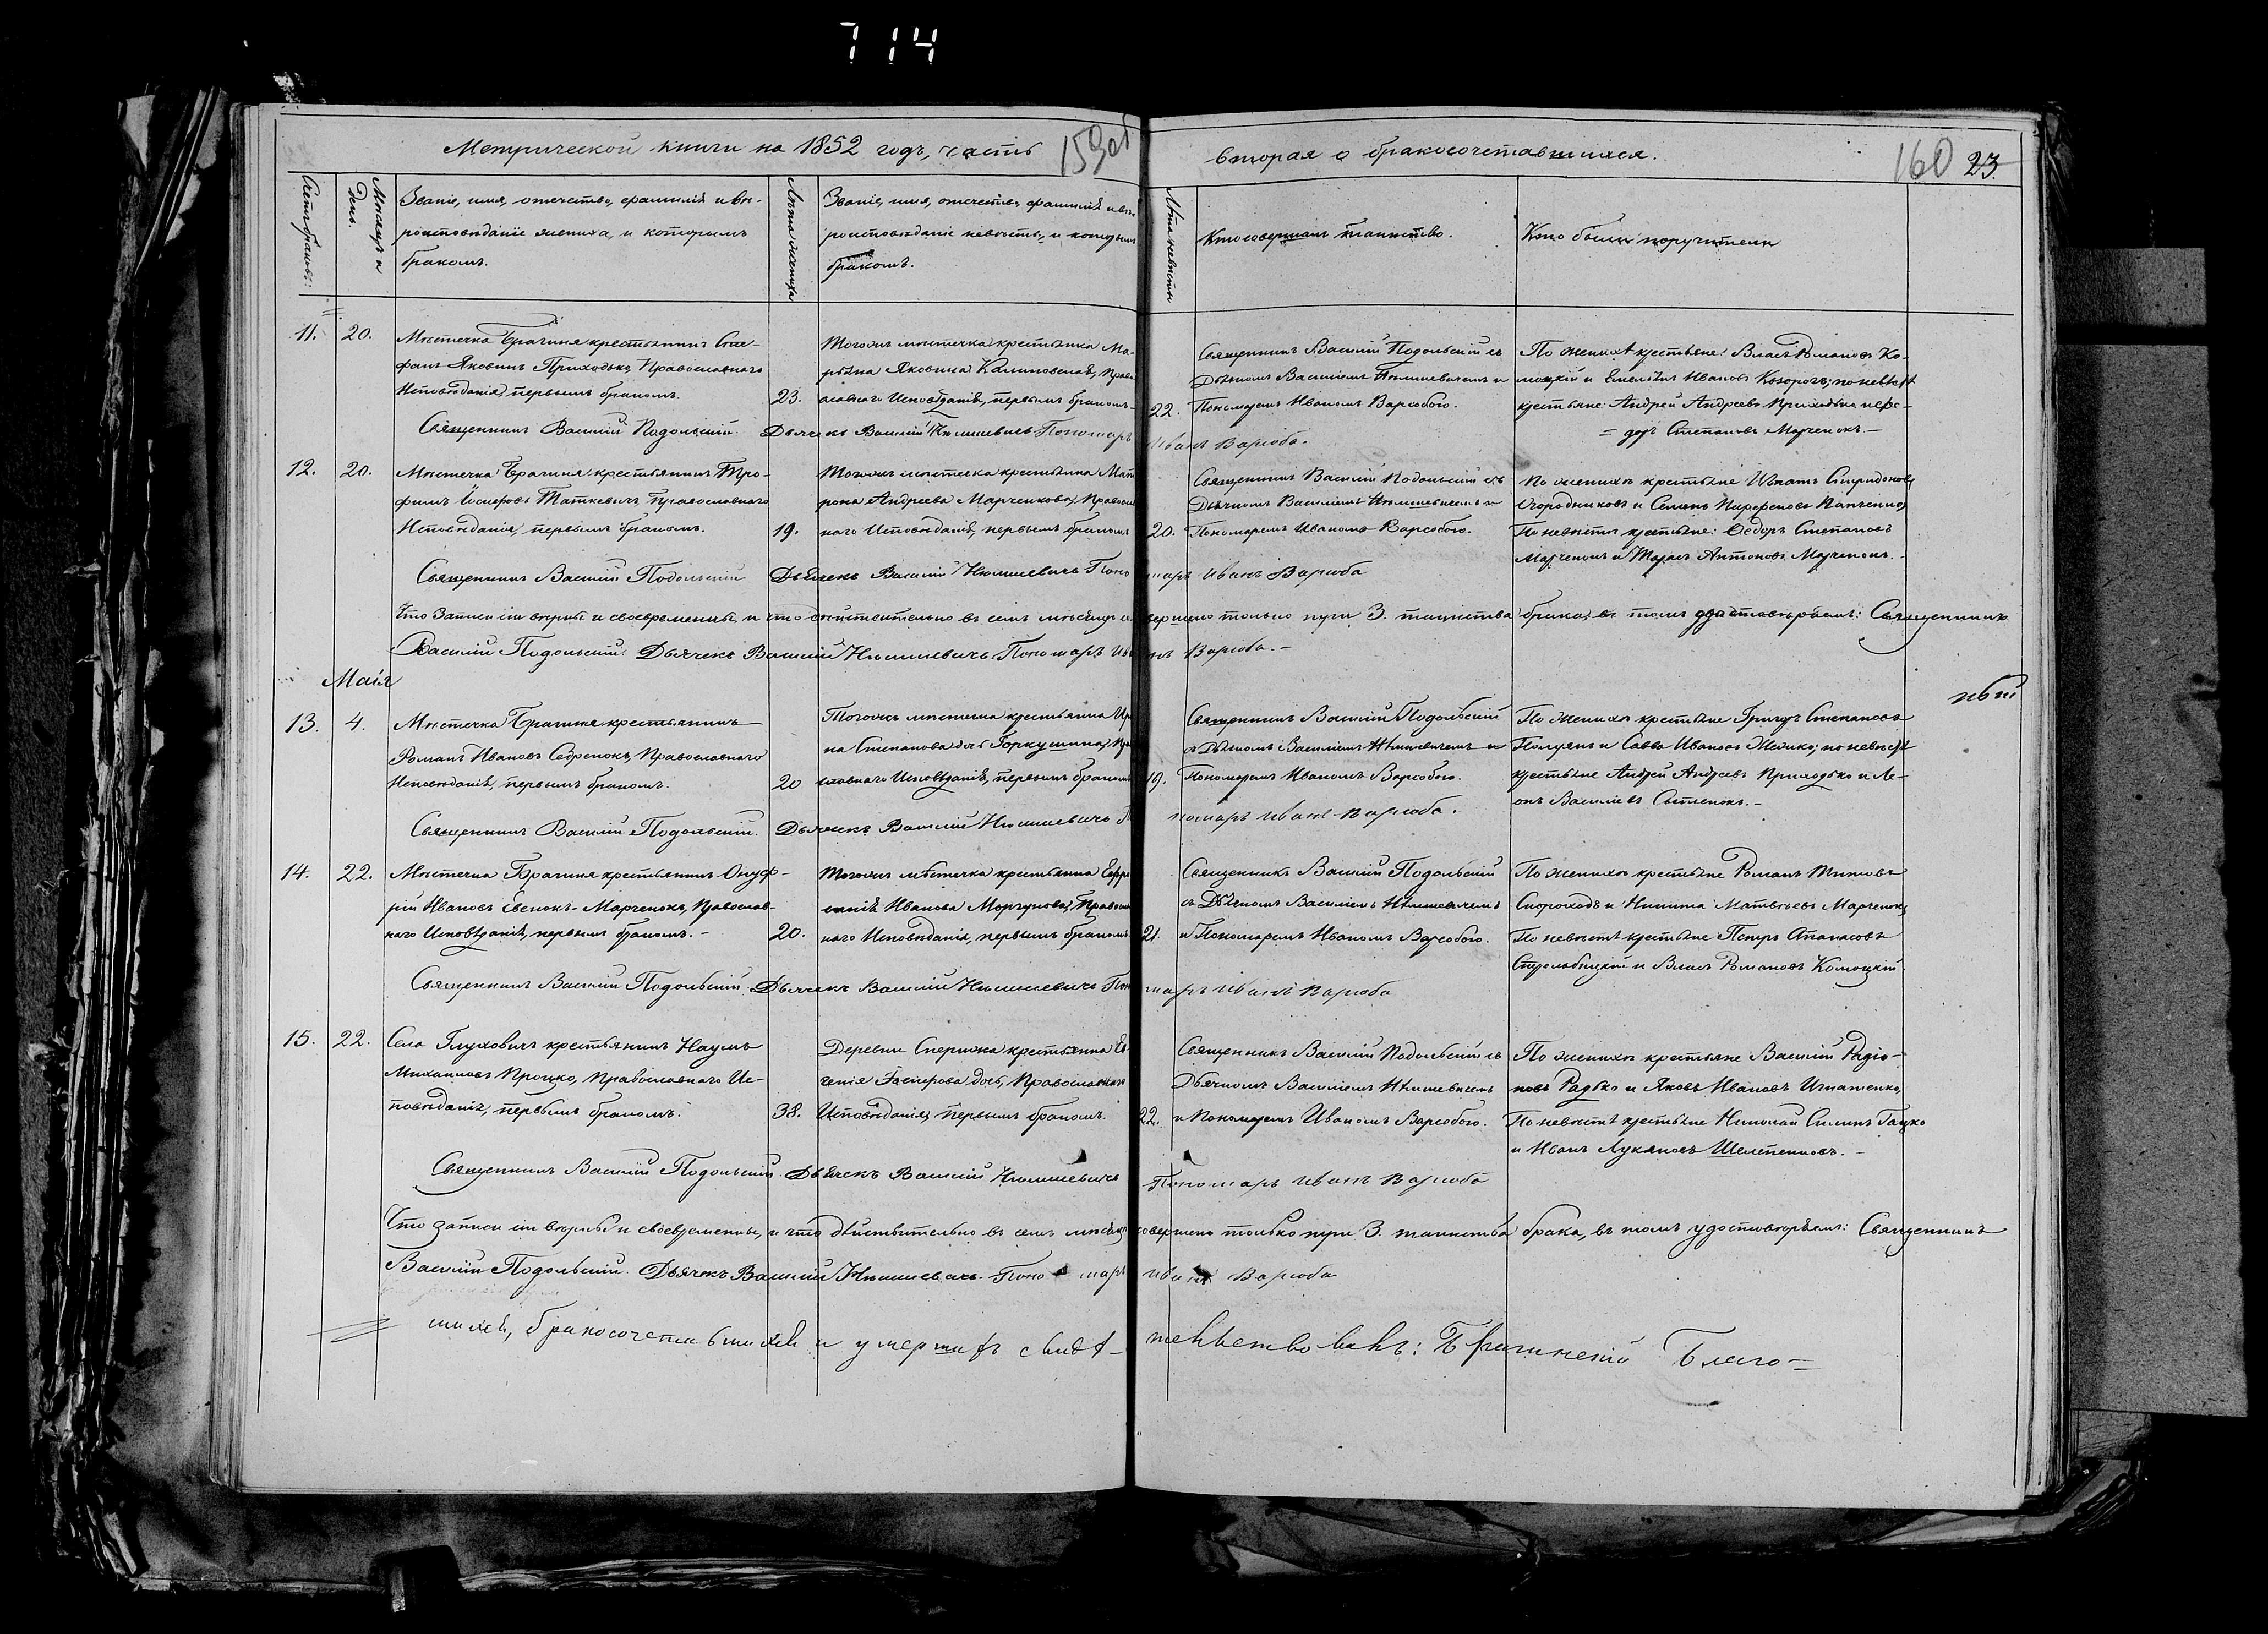 714
Метрической книги на 1852 годъ, часть
159об
вторая о бракосочетавшихся.
160 23.
Счетъ браковъ.
Мѣсяцъ и день.
Званіе, имя, отечество, фамилія и вѣ-
роисповѣданіе жениха, и которымъ
бракомъ.
Лѣта жениха
Званіе, имя, отечество, фамилія и вѣ-
роисповѣданіе невѣсты, и которымъ
бракомъ.
Лѣта невѣсты
Кто совершалъ таинство.
Кто были поручители
11. 20.
Мѣстечка Брагиня крестьянинъ Сте-
фанъ Яковинъ Приходько, Православнаго
Исповѣданія, первымъ бракомъ.
23.
Тогожъ мѣстечка крестьянка Ма-
рѣяна Яковина Калиновская, Право
славнаго Исповѣданія, первымъ бракомъ.
22.
Священникъ Василій Подольскій съ
Дьячкомъ Василіемъ Нѣмшевичемъ и
Пономаремъ Иваномъ Варсобою.
По женихѣ крестьяне: Власъ Романовъ Ко-
моцкій и Емельянъ Ивановъ Козорогъ; по невѣстѣ
крестьяне: Андрей Андреевъ Приходько и Ѳео-
доръ Степановъ Марченокъ
Священникъ Василій Подольскій. Дьячекъ Василій Нѣмшевичъ Пономарь Иванъ Варсоба.
12. 20.
Мѣстечка Брагиня крестьянинъ Тро-
фимъ Іосифовъ Таткевичъ, Православнаго
Исповѣданія, первымъ бракомъ.
19.
Тогожъ мѣстечка крестьянка Мат
рона Андреева Марченкова, Православ
наго Исповѣданія, первымъ бракомъ
20.
Священникъ Василій Подольскій съ
Дьячкомъ Василіемъ Нѣмшевичемъ и
Пономаремъ Иваномъ Варсобою.
По женихѣ крестьяне Игнатъ Спиридоновъ
Огородниковъ и Семенъ Парфеновъ
По невѣстѣ крестьяне: Ѳедоръ Степановъ
Марченокъ и Тарасъ Антоновъ Марченокъ.
Священникъ Василій Подольскій Дьячекъ Василій Нѣмшевичъ Пономарь Иванъ Варсоба
Что записи сіи вѣрны и своевременны, и что дѣйствительно въ семъ мѣсяцѣ совершено только пути 3. таинства брака, въ томъ удостовѣряемъ: Священникъ
Василій Подольскій Дьячекъ Василій Нѣмшевичъ Пономарь Иванъ Варсоба.
Маія
13. 4.
Мѣстечка Брагиня крестьянинъ
Романъ Ивановъ Седренокъ, Православнаго
Исповѣданія, первымъ бракомъ.
20
Тогожъ мѣстечка крестьянка Ири
на Степанова дочь Горкушина, Пра
славнаго Исповѣданія, первымъ бракомъ
19.
Священникъ Василій Подольскій
съ Дьячкомъ Василіемъ Нѣмшевичемъ и
Пономаремъ Иваномъ Варсобою.
По женихѣ крестьяне Григоръ Степановъ
Полуянъ и Савва Ивановъ; по невѣстѣ
крестьяне Андрей Андреевъ Приходько и Ле-
онъ Василіевъ
Священникъ Василій Подольскій. Дьячекъ Василій Нѣмшевичъ Пономарь Иванъ Варсоба.
14. 22.
Мѣстечка Брагиня крестьянинъ Онуф-
рій Ивановъ Евенокъ-Марченокъ, Православ-
наго Исповѣданія, первымъ бракомъ.
20.
Тогожъ мѣстечка крестьянка Евфро
синія Иванова Моргунова, Православ
наго Исповѣданія, первымъ бракомъ
21.
Священникъ Василій Подольскій
съ Дьячкомъ Василіемъ Нѣмшевичемъ
и Пономаремъ Иваномъ Варсобою.
По женихѣ крестьяне Романъ Титовъ
Скороходъ и Никита Матвѣевъ Марченокъ,
По невѣстѣ крестьяне Петръ Апанасовъ
Стрельбицкій и Власъ Романовъ Комоцкій.
Священникъ Василій Подольскій. Дьячекъ Василій Нѣмшевичъ Пономарь Иванъ Варсоба
15. 22.
Села Глуховичъ крестьянинъ Наумъ
Михаиловъ Процко, Православнаго Ис-
повѣданія, первымъ бракомъ.
38.
Деревни Сперижа крестьянка Ев-
генія дочь, Православнаго
Исповѣданія, первымъ бракомъ.
22.
Священникъ Василій Подольскій съ
Дьячкомъ Василіемъ Нѣмшевичемъ
и Пономаремъ Иваномъ Варсобою.
По женихѣ крестьяне Василій Радіо-
новъ Радько и Яковъ Ивановъ Игнатенко,
По невѣстѣ крестьяне Николай Силинъ Гацко
и Иванъ Лукановъ Шелепенковъ.
Священникъ Василій Подольскій. Дьячекъ Василій Нѣмшевичъ Пономарь Иванъ Варсоба
Что записи сіи вѣрны и своевременны, и что дѣйствительно въ семъ мѣсяцѣ совершено только пути 3. таинства брака, въ томъ удостовѣряемъ: Священникъ
Василій Подольскій. Дьячекъ Василій Нѣмшевичъ. Пономарь Иванъ Варсоба
шихся, бракосочетавшихся и умершихъ свидѣ-тельствовалъ: Брагинскій Благо=